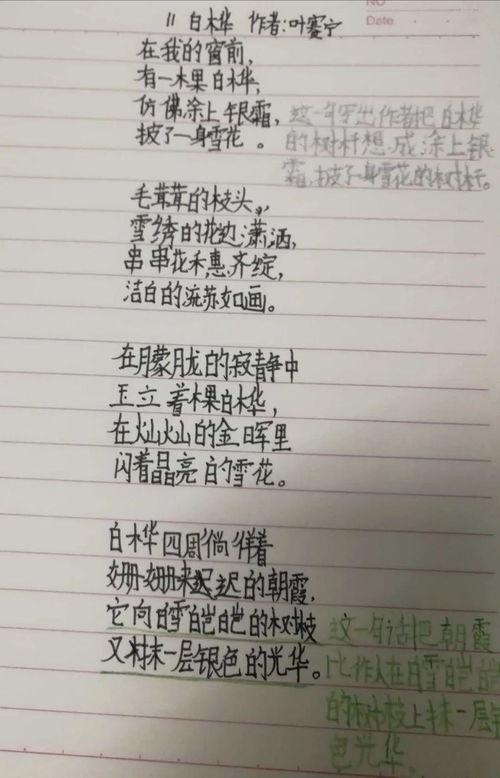 NO
Date
11 白桦 作者:叶赛宁
在我的窗前,
有一木果白桦,
仿佛涂上银霜,
披了一身雪花。
这一句写出作者把白桦
的树杆想成涂上银
霜,披了一身雪花的树杆。
毛茸茸的枝头,
雪绣的花边潇洒,
串串花穗齐绽,
洁白的流苏如画。
在朦胧的寂静中
玉立着棵白桦,
在灿灿的金晖里
闪着晶亮的雪花。
白桦四周徜徉着
姗姗来迟的朝霞,
它向白雪皑皑的树枝
又抹一层银色的光华。
这一句话把朝霞
比作人在白雪皑皑
的树枝上抹一层银
色光华。